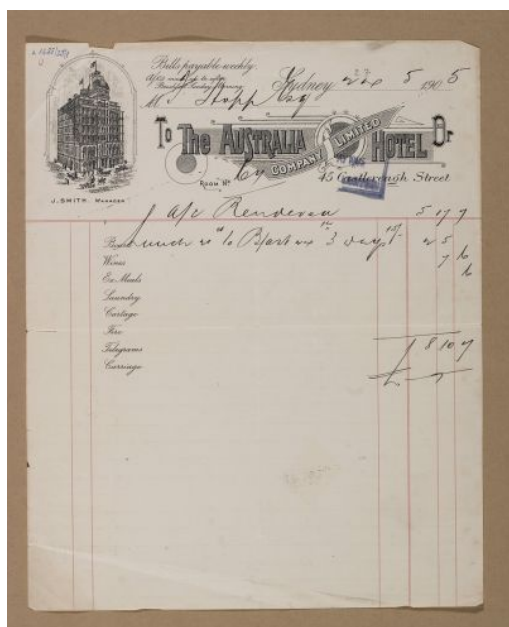 Bills payable weekly.
Sydney 5 1905
Mr Stopp Esq
To The AUSTRALIA HOTEL Dr
COMPANY LIMITED
ROOM No
45 Castlereagh Street
J. SMITH. MANAGER
a/c Rendered 5 17 7
Board Lunch to B/fast 3 days 15/- 2 5
Wines 7 6
Ex Meals 6
Laundry
Cartage
Fire
Telegrams 8 10 7
Carriage